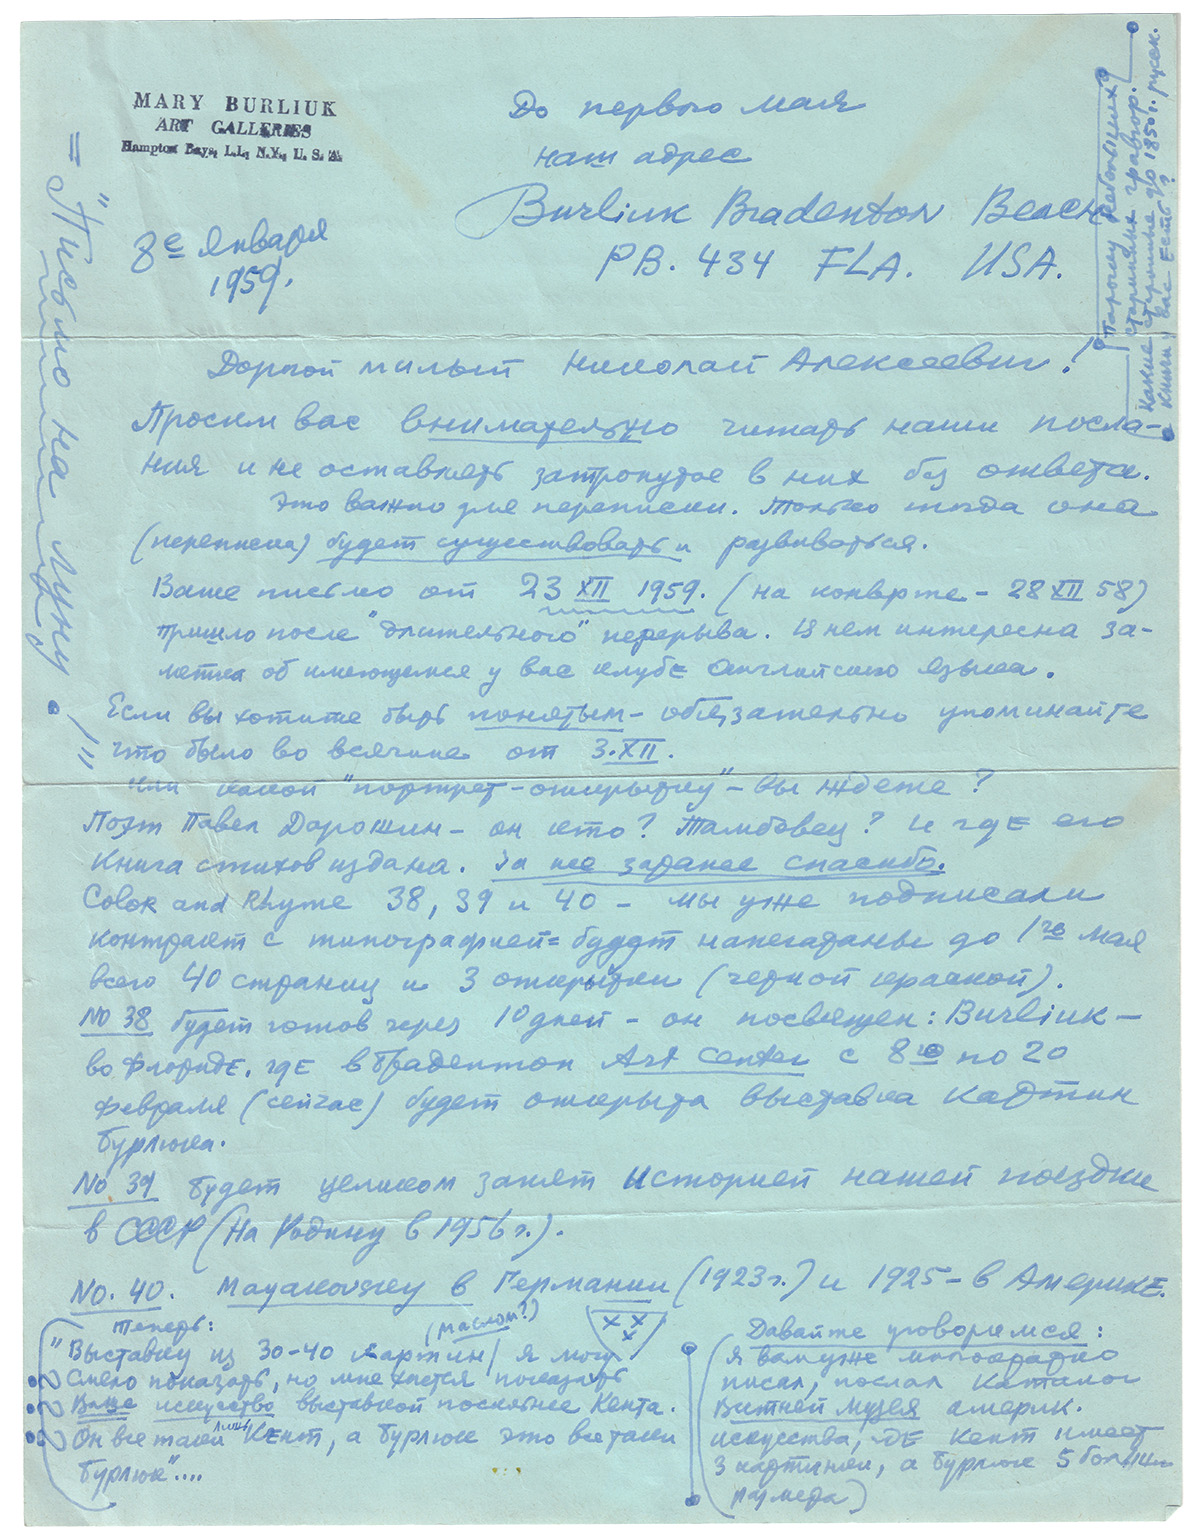 MARY BURLIUK
ART GALLERIES
Hampton Bays, L.I., N.Y., U. S. A.
До первого мая
наш адрес
Burliuk Bradenton Beach
P.B. 434 FLA. USA.
8е января
1959.
= "Письмо на луну!"
старинных гравюр.
Какие старинные до 1850 г. русск.
книги у вас есть?
Дорогой милый Николай Алексеевич!
Просим вас внимательно читать наши посла-
ния и не оставлять затронутое в них без ответа.
Это важно для переписки. Только тогда она
(переписка) будет существовать и развиваться.
Ваше письмо от 23 XII 1959. (на конверте - 28 XII 58)
пришло после "длительного" перерыва. В нем интересна за-
метка об имеющемся у вас клубе английского языка.
Если вы хотите быть понятым - обязательно упоминайте
что было во всячине от 3.XII.
Или какой "портрет-открытку" - вы ждете?
Поэт Павел Дорошин - он кто? Тамбовец? И где его
книга стихов издана. За нее заранее спасибо.
Color and Rhyme 38, 39 и 40 - мы уже подписали
контракт с типографией = будут напечатаны до 1го мая
всего 40 страниц и 3 открытки (черной краской).
No 38 будет готов через 10 дней - он посвящен: Burliuk -
во Флориде, где в Брадентон Art Center с 8го по 20
февраля (сейчас) будет открыта выставка картин
Бурлюка.
No 39 будет целиком занят историей нашей поездки
в СССР (на Родину в 1956 г.).
No. 40. Mayakovskey в Германии (1923 г.) и 1925 - в Америке.
теперь:
(маслом?)
"Выставку из 30-40 картин я могу
смело показать, но мне хочется показать
Ваше искусство выставкой посильнее Кента.
Он все таки лишь Кент, а Бурлюк это все таки
Бурлюк"....
X X X
Давайте уговоримся:
(я вам уже многократно
писал, послал каталог
Витней музея америк.
искусства, где Кент имеет
3 картинки, а Бурлюк 5 больших
размера)